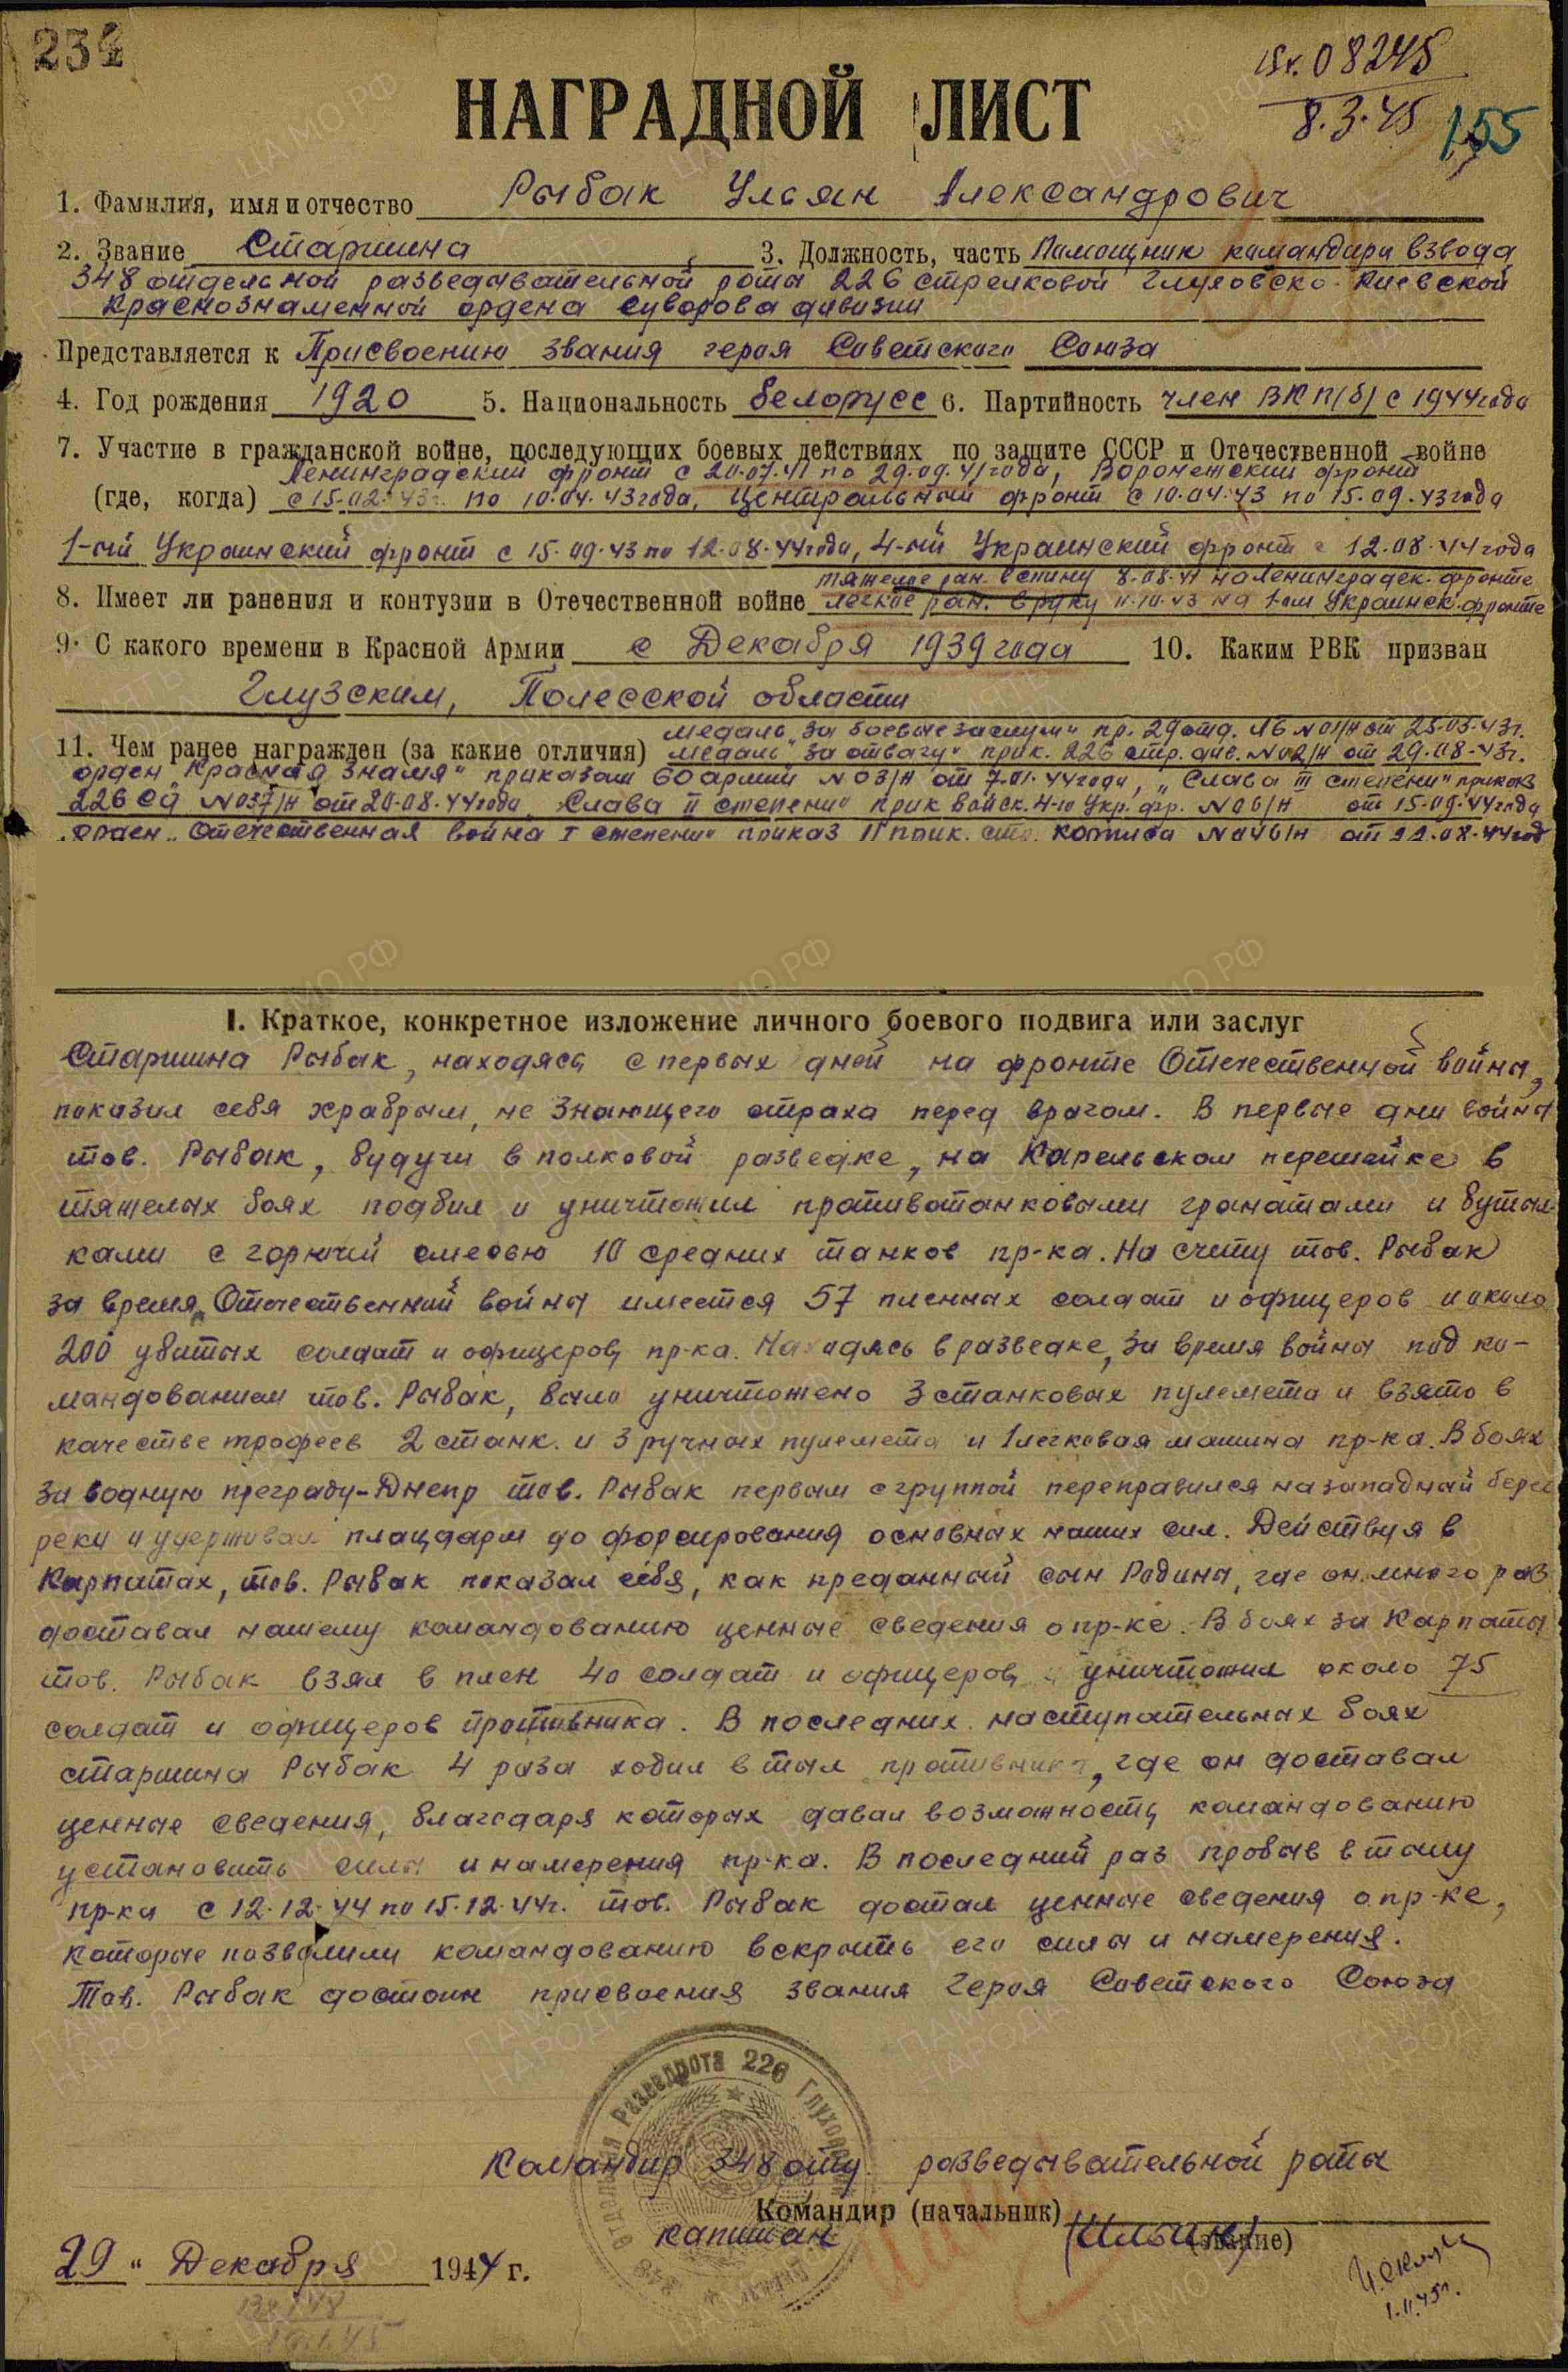 234
08245
8.3.45
155
НАГРАДНОЙ ЛИСТ
1. Фамилия, имя и отчество Рыбак Ульян Александрович
2. Звание Старшина 3. Должность, часть Помощник командира взвода
348 отдельной разведывательной роты 226 стрелковой Глуховско-Киевской
Краснознаменной ордена Суворова дивизии
Представляется к Присвоению звания героя Советского Союза
4. Год рождения 1920 5. Национальность белорусс 6. Партийность член ВКП(б) с 1944 года
7. Участие в гражданской войне, последующих боевых действиях по защите СССР и Отечественной войне
Ленинградский фронт с 20.07.41 по 29.09.41 года, Воронежский фронт
(где, когда) с 15.02.43г. по 10.04.43 года, Центральный фронт с 10.04.43 по 15.09.43 года
1-ый Украинский фронт с 15.09.43 по 12.08.44 года, 4-ый Украинский фронт с 12.08.44 года
тяжелое ран. в спину 8.08.41 на Ленинградск. фронте
8. Имеет ли ранения и контузии в Отечественной войне легкое ран. в руку 11.10.43 на 1-ом Украинск. фронте
9. С какого времени в Красной Армии с Декабря 1939 года 10. Каким РВК призван
Глузским, Полесской области
медаль „За боевые заслуги" пр. 29 отд. ЛБ №01/н от 25.05.43г.
11. Чем ранее награжден (за какие отличия) медаль „За отвагу" прик. 226 стр. див. №02/н от 29.08.43г.
орден „Красная Знамя" приказом 60 армии №03/н от 7.01.44 года, „Слава III степени" приказ
226 сд №037/н от 20.08.44 года „Слава II степени" прик войск. 4-го Укр. фр. №06/н от 15.09.44 года
орден „Отечественная война I степени" приказ 11 прик. стр. корпуса №046/н от 22.08.44 год
I. Краткое, конкретное изложение личного боевого подвига или заслуг
Старшина Рыбак, находясь с первых дней на фронте Отечественной войны,
показал себя храбрым, не знающего страха перед врагом. В первые дни войны
тов. Рыбак, будучи в полковой разведке, на Карельском перешейке в
тяжелых боях подбил и уничтожил противотанковыми гранатами и бутыл-
ками с горючей смесью 10 средних танков пр-ка. На счету тов. Рыбак
за время Отечественной войны имеется 57 пленных солдат и офицеров и около
200 убитых солдат и офицеров пр-ка. Находясь в разведке, за время войны под ко-
мандованием тов. Рыбак, было уничтожено 3 станковых пулемета и взято в
качестве трофеев 2 станк. и 3 ручных пулемета и 1 легковая машина пр-ка. В боях
за водную преграду-Днепр тов. Рыбак первым с группой переправился на западный берег
реки и удерживал плацдарм до форсирования основных наших сил. Действуя в
Карпатах, тов. Рыбак показал себя, как преданный сын Родины, где он много раз
доставал нашему командованию ценные сведения о пр-ке. В боях за Карпаты
тов. Рыбак взял в плен 40 солдат и офицеров и уничтожил около 75
солдат и офицеров противника. В последних наступательных боях
старшина Рыбак 4 раза ходил в тыл противника, где он доставал
ценные сведения, благодаря которых давал возможность командованию
установить силы и намерения пр-ка. В последний раз пробыв в тылу
пр-ка с 12.12.44 по 15.12.44г. тов. Рыбак достал ценные сведения о пр-ке,
которые позволили командованию вскрыть его силы и намерения.
Тов. Рыбак достоин присвоения звания Героя Советского Союза
Командир 348 отд. разведывательной роты
Командир (начальник)
капитан (Ильин) (звание)
29 " Декабря 1944 г.